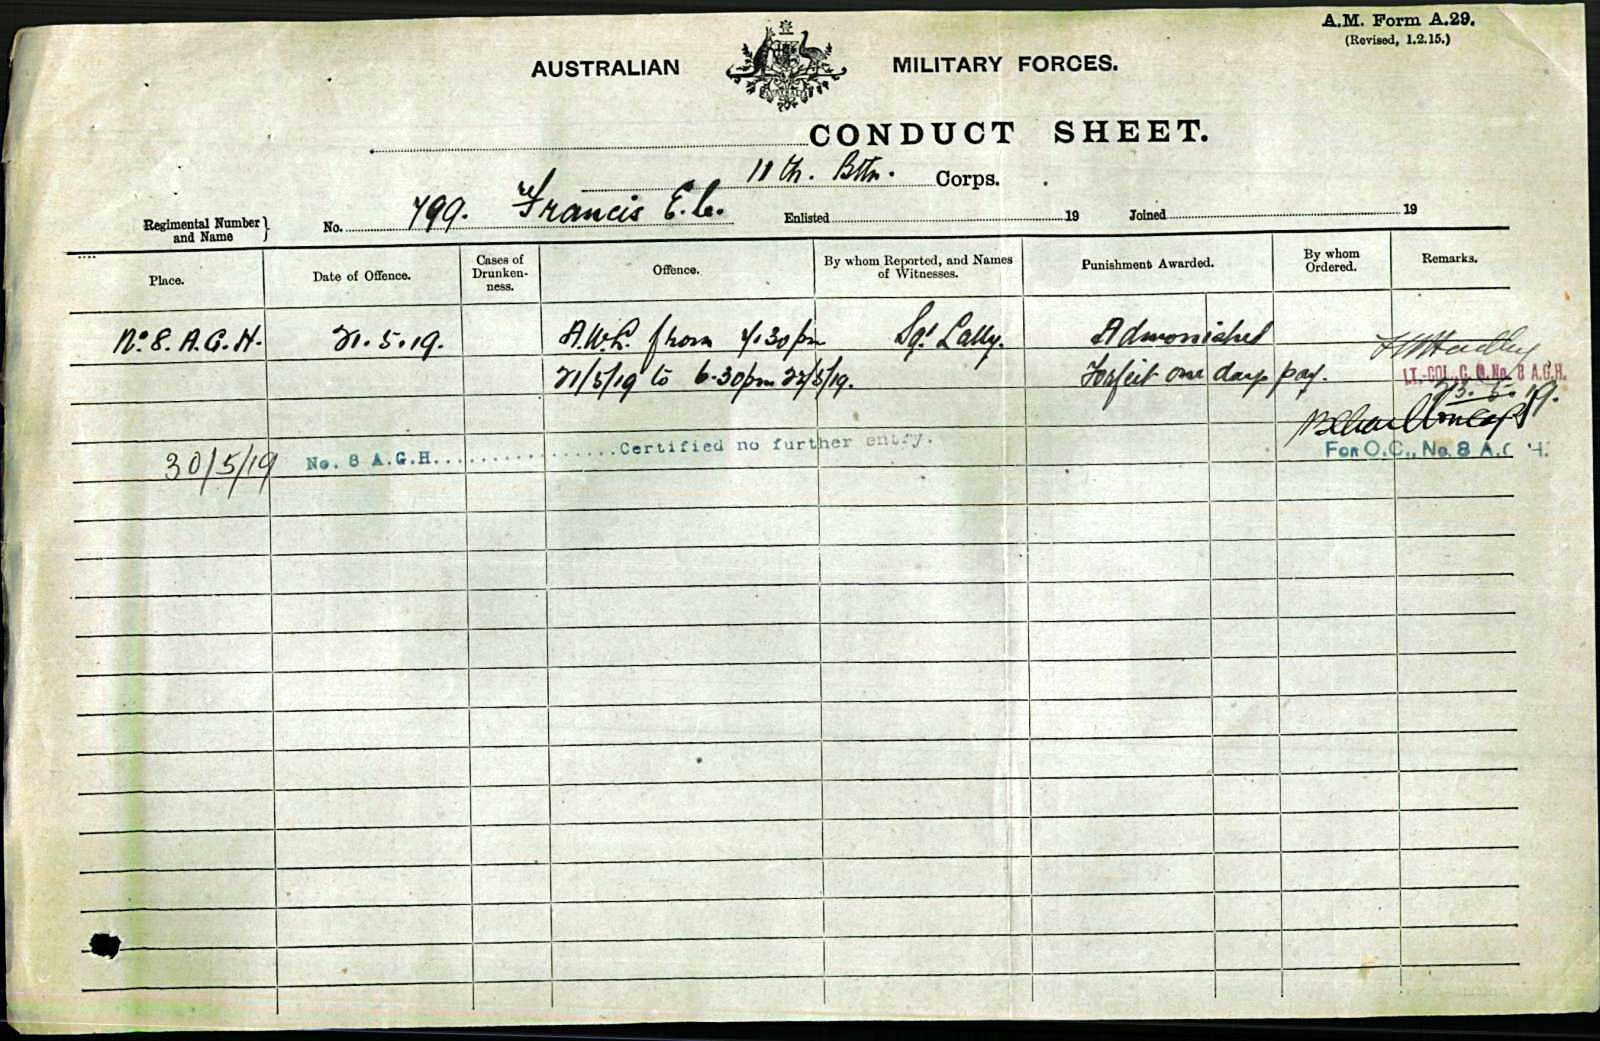 A.M. Form A.29.
(Revised, 1.2.15.)
AUSTRALIAN MILITARY FORCES.
CONDUCT SHEET.
11th. Bttn. Corps.
Regimental Number and Name } No. 799. Francis E.C. Enlisted 19 Joined 19
Place. Date of Offence. Cases of Drunken-ness. Offence. By whom Reported, and Names of Witnesses. Punishment Awarded. By whom Ordered. Remarks.
No 8. A.G.H. 21.5.19. A.W.L. from 4.30pm Sgt Lally. Admonished
21/5/19 to 6.30pm 22/5/19. Forfeit one days pay. LT.-COL. C.O. No. 8 A.G.H.
23.5.19.
30/5/19 No. 8 A.G.H. Certified no further entry. FOR O.C., No. 8 A.G.H.